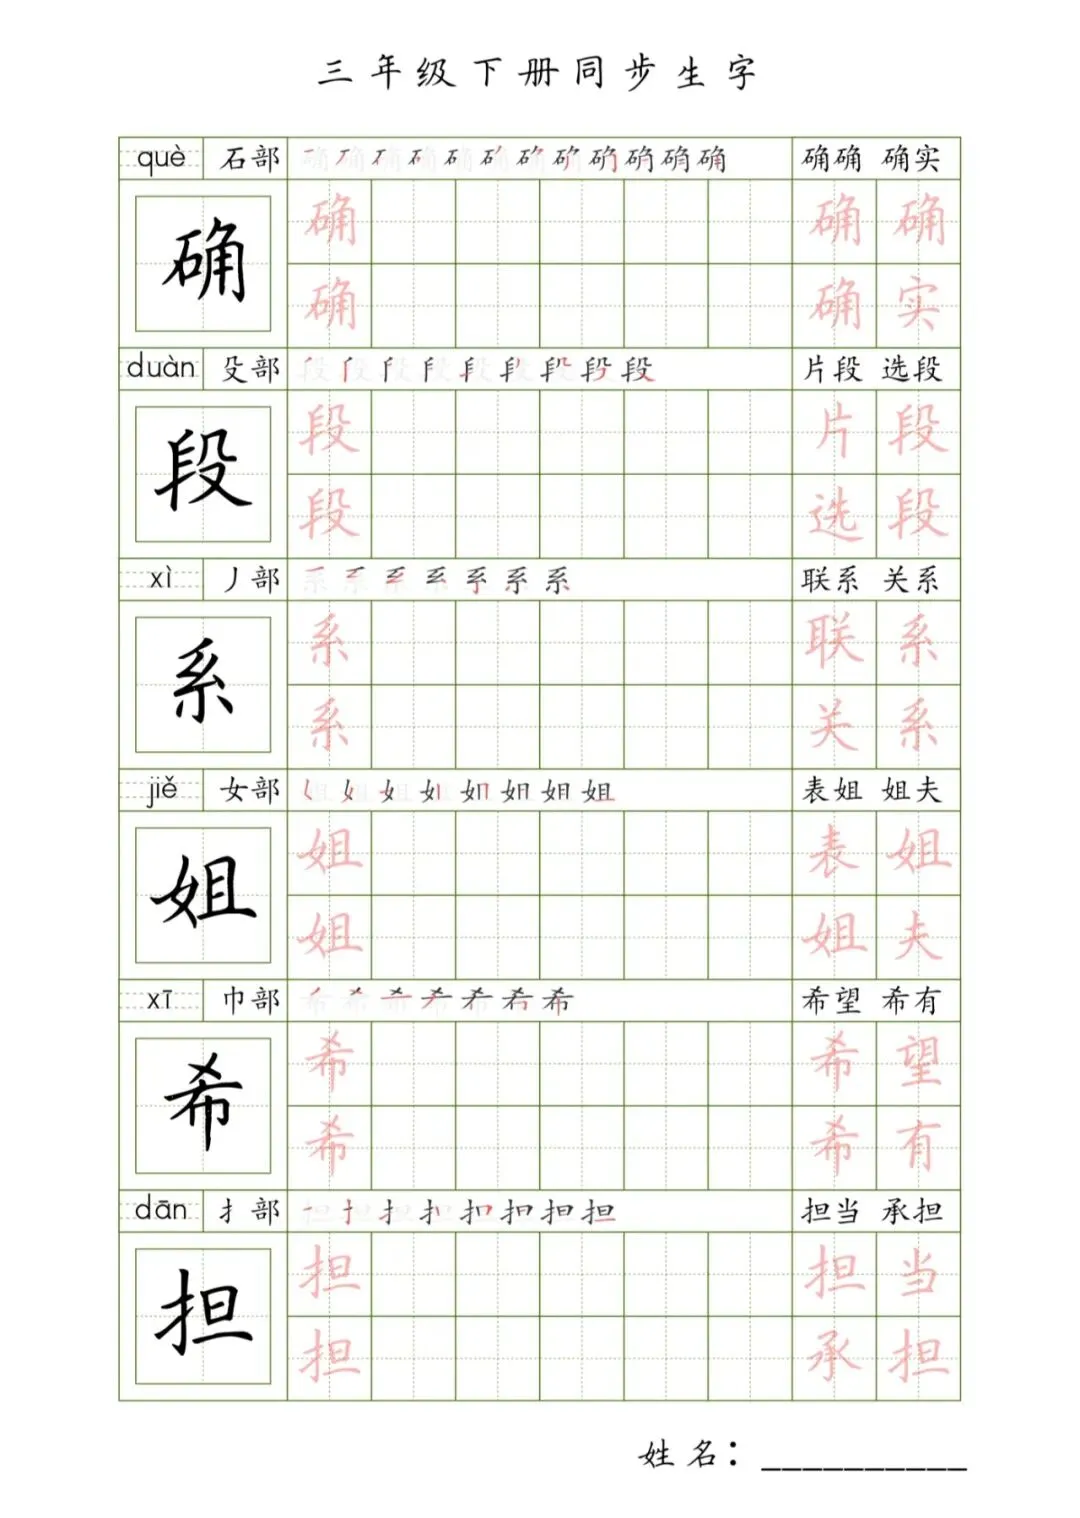 三年级下册同步生字
què 石部 确确 确实
确 确 确 确
确 确 实
duàn 殳部 片段 选段
段 段 片 段
段 选 段
xì 丿部 联系 关系
系 系 联 系
系 关 系
jiě 女部 表姐 姐夫
姐 姐 表 姐
姐 姐 夫
xī 巾部 希望 希有
希 希 希 望
希 希 有
dān 扌部 担当 承担
担 担 担 当
担 承 担
姓名：__________